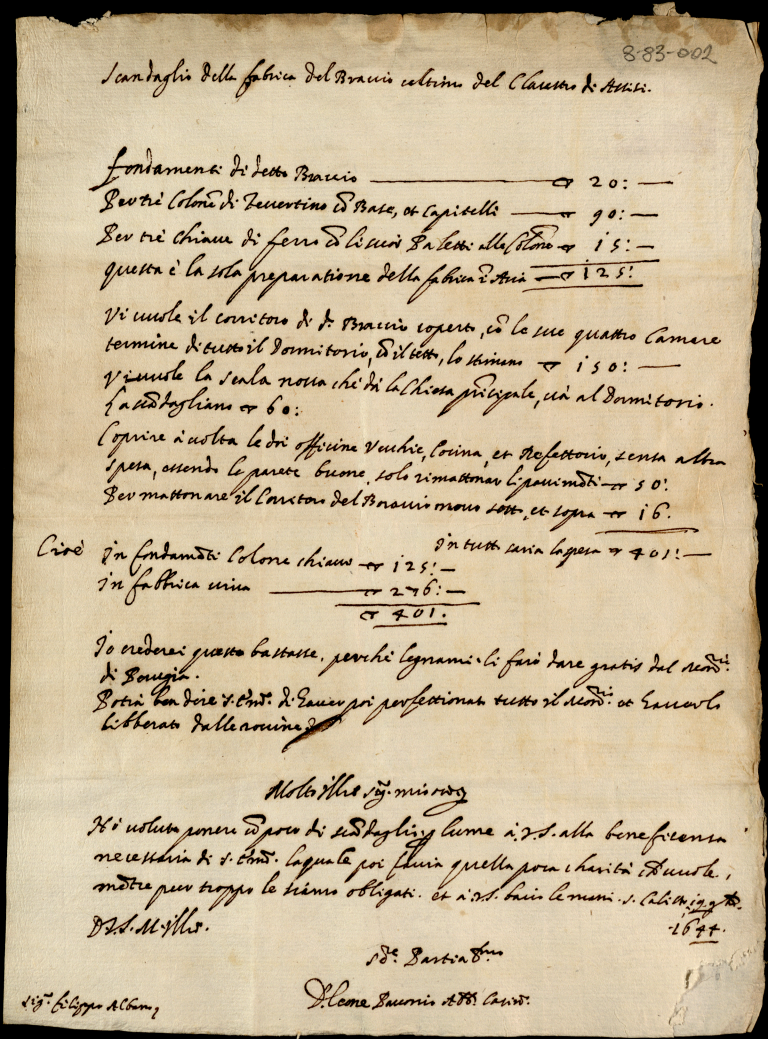 8-83-002
Scandaglio della fabrica del Braccio ultimo del Claustro di Assisi.
Fondamenti di detto Braccio 20:
Per tre Colone di Tevertino cō Base, et Capitelli 90:
Per tre chiave di ferro cō li suoi Paletti alle Colone 15:
questa è la sola preparatione della fabrica ī Aria 125:
Vi vuole il corritoro di d.º Braccio coperto, cō le sue quattro Camere
termine di tutto il Dormitorio, cō il tetto, lo stimano 150:
Vi vuole la scala nova che dà la Chiesa prīcipale, và al Dormitorio.
La scādagliano 60:
Coprire à volta le doi officine Vecchie, Cocina, et Refettorio, senza altra
spesa, essendo le parete buone, solo rimattonar li pavimēti 50:
Per mattonare il Corritoro del Braccio novo sotto, et sopra 16.
In tutto saria la spesa 401:
Cioè In fondamēti Colone chiave 125:
In fabbrica viva 276:
401.
Io crederei questo bastasse, perche legnami li farò dare gratis dal Mon.ri
di Perugia.
Potrà ben dire S. Em.ª di haver poi perfettionato tutto il Mon.rio et haverlo
libberato dalle rovine
Molto Ill.re Sig.
Hò voluto ponere cō poco di scādaglio lume à V.S. alla beneficenza
necessaria di S. Em.ª laquale poi favia quella poca charità vuole,
mētre pur troppo le siamo obligati. et à V.S. bacio le mani. S. Calisto
1644.
D V.S. M. Ill.re
D. Leone Pavonio Abb. Casin.
Sig.r Filippo Albano